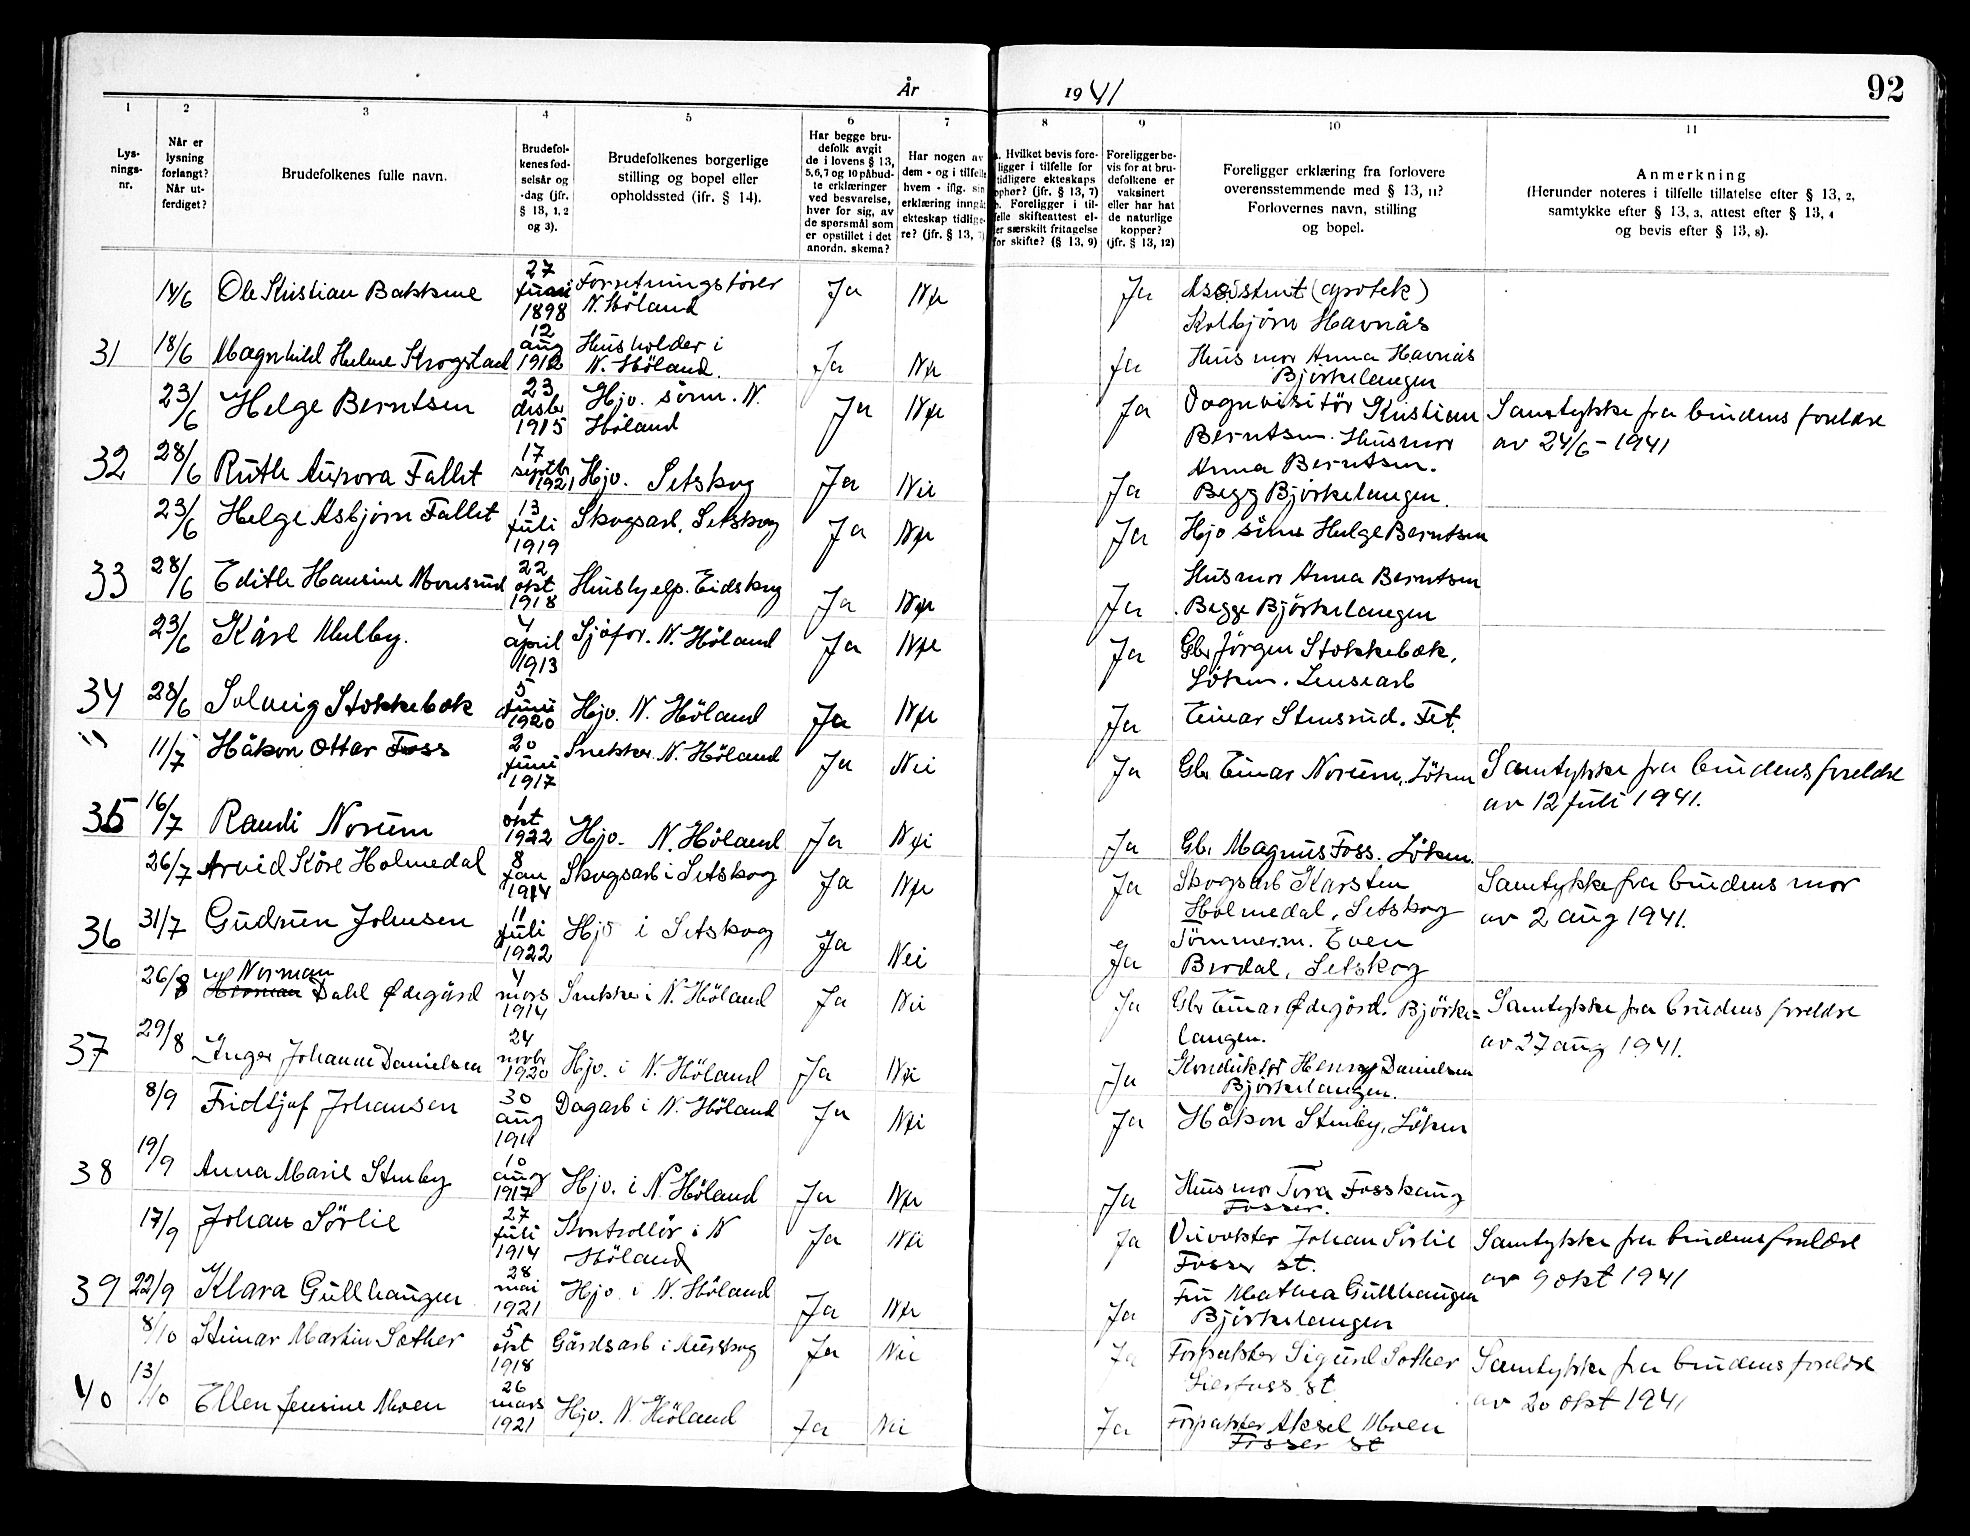 År 1941
92
1 2 3 4 5 6 7 8 9 10 11
Lys-
nings-
nr.
Når er
lysning
forlangt?
Når ut-
ferdiget?
Brudefolkenes fulle navn.
Brudefol-
kenes fød-
selsår og
-dag (jfr.
§ 13, 1, 2
og 3).
Brudefolkenes borgerlige
stilling og bopel eller
opholdssted (jfr. § 14).
Har begge bru-
defolk avgit
de i lovens § 13,
5,6,7 og 10 påbud-
te erklæringer
ved besvarelse,
hver for sig, av
de spørsmål som
er opstillet i det
anordn. skema?
Har nogen av
dem - og i tilfelle
hvem - iflg. sin
erklæring inngåt
ekteskap tidlige-
re? (jfr. § 13, 7)
a. Hvilket bevis fore-
ligger i tilfelle for
tidligere ekteskaps
ophør? (jfr. § 13, 7)
b. Foreligger i til-
felle skifteattest el-
ler særskilt fritagelse
for skifte? (§ 13, 9)
Foreligger be-
vis for at bru-
defolkene er
vaksinert
eller har hat
de naturlige
kopper?
(jfr. § 13, 12)
Foreligger erklæring fra forlovere
overensstemmende med § 13, 11?
Forlovernes navn, stilling
og bopel.
Anmerkning
(Herunder noteres i tilfelle tillatelse efter § 13, 2,
samtykke efter § 13, 3, attest efter § 13, 4
og bevis efter § 13, 8).
14/6 Ole Kristian Bakkene 27 juni 1898 Forretningsfører N. Höland Ja Nei Ja Assistent (apotek)
Kolbjörn Havnås
31 18/6 Magnhild Helene Skogstad 12 aug 1912 Husholder i N. Höland. Ja Nei Ja Husmor Anna Havnås
Björkelangen
23/6 Helge Berntsen 23 desbr 1915 Hjv. sönn. N. Höland Ja Nei Ja Vognvisitör Kristian Samtykke fra brudens foreldre
Berntsen. Husmor av 24/6 - 1941
32 28/6 Ruth Aurora Fallet 17 septbr 1921 Hjv. Setskog Ja Nei Ja Anna Berntsen.
Begg Björkelangen.
23/6 Helge Asbjørn Fallet 13 juli 1919 Skogsarb. Setskog Ja Nei Ja Hjv sönn Helge Berntsen
33 28/6 Edith Hansine Monsrud 22 okt 1918 Hushjelp. Eidskog Ja Nei Ja Husmor Anna Berntsen
Begge Björkelangen
23/6 Kåre Melby. 4 april 1913 Sjåför. N. Höland Ja Nei Ja Gbr Jörgen Stokkebæk,
Löken. Linsearb
34 28/6 Solveig Stokkebæk 5 juni 1920 Hjv. N. Höland Ja Nei Ja Einar Stensrud. Fet.
" 11/7 Håkon Ottar Foss 20 juni 1917 Snekker N. Höland Ja Nei Ja Gbr Einar Norum, Löken Samtykke fra brudens foreldre
av 12 juli 1941.
35 16/7 Randi Norum 1 okt 1922 Hjv. N. Höland Ja Nei Ja Gbr Magnus Foss. Löken.
26/7 Arvid Kåre Holmedal 8 jan 1914 Skogsarb i Setskog Ja Nei Ja Skogsarb Karsten Samtykke fra brudens mor
Holmedal, Setskog av 2 aug 1941.
36 31/7 Gudrun Johnsen 11 juli 1922 Hjv i Setskog Ja Nei Ja Tömmerm. Even
Berdal, Setskog
26/8 Norman Dahl Ødegård 4 mars 1914 Snekker i N. Höland Ja Nei Ja Gbr Einar Ødegård. Björke= Samtykke fra brudens foreldre
langen. av 27 aug 1941.
37 29/8 Inger Johanne Danielsen 24 novbr 1920 Hjv. i N. Höland Ja Nei Ja Konduktör Henry Danielsen
Björkelangen.
8/9 Fridtjof Johansen 30 aug 1911 Dagarb i N. Höland Ja Nei Ja Håkon Stenby, Löken
38 19/9 Anna Marie Stenby 10 aug 1917 Hjv. i N. Höland Ja Nei Ja Husmor Tora Fosshaug
Fosser.
17/9 Johan Sörlie 27 juli 1914 Kontrollör i N Höland Ja Nei Ja Veivokter Johan Sörlie Samtykke fra brudens foreldre
Fosser st. av 9 okt 1941
39 22/9 Klara Gullhaugen 28 mai 1921 Hjv. i N. Höland Ja Nei Ja Fru Mathea Gullhaugen
Björkelangen
8/10 Steinar Martin Sæther 5 okt 1918 Gårdsarb i Aurskog Ja Nei Ja Forpakter Sigurd Sæther Samtykke fra brudens foreldre
Lierfoss st. av 20 okt 1941
40 13/10 Ellen Jensine Moen 26 mars 1921 Hjv. N. Höland Ja Nei Ja Forpakter Aksel Moen
Fosser st